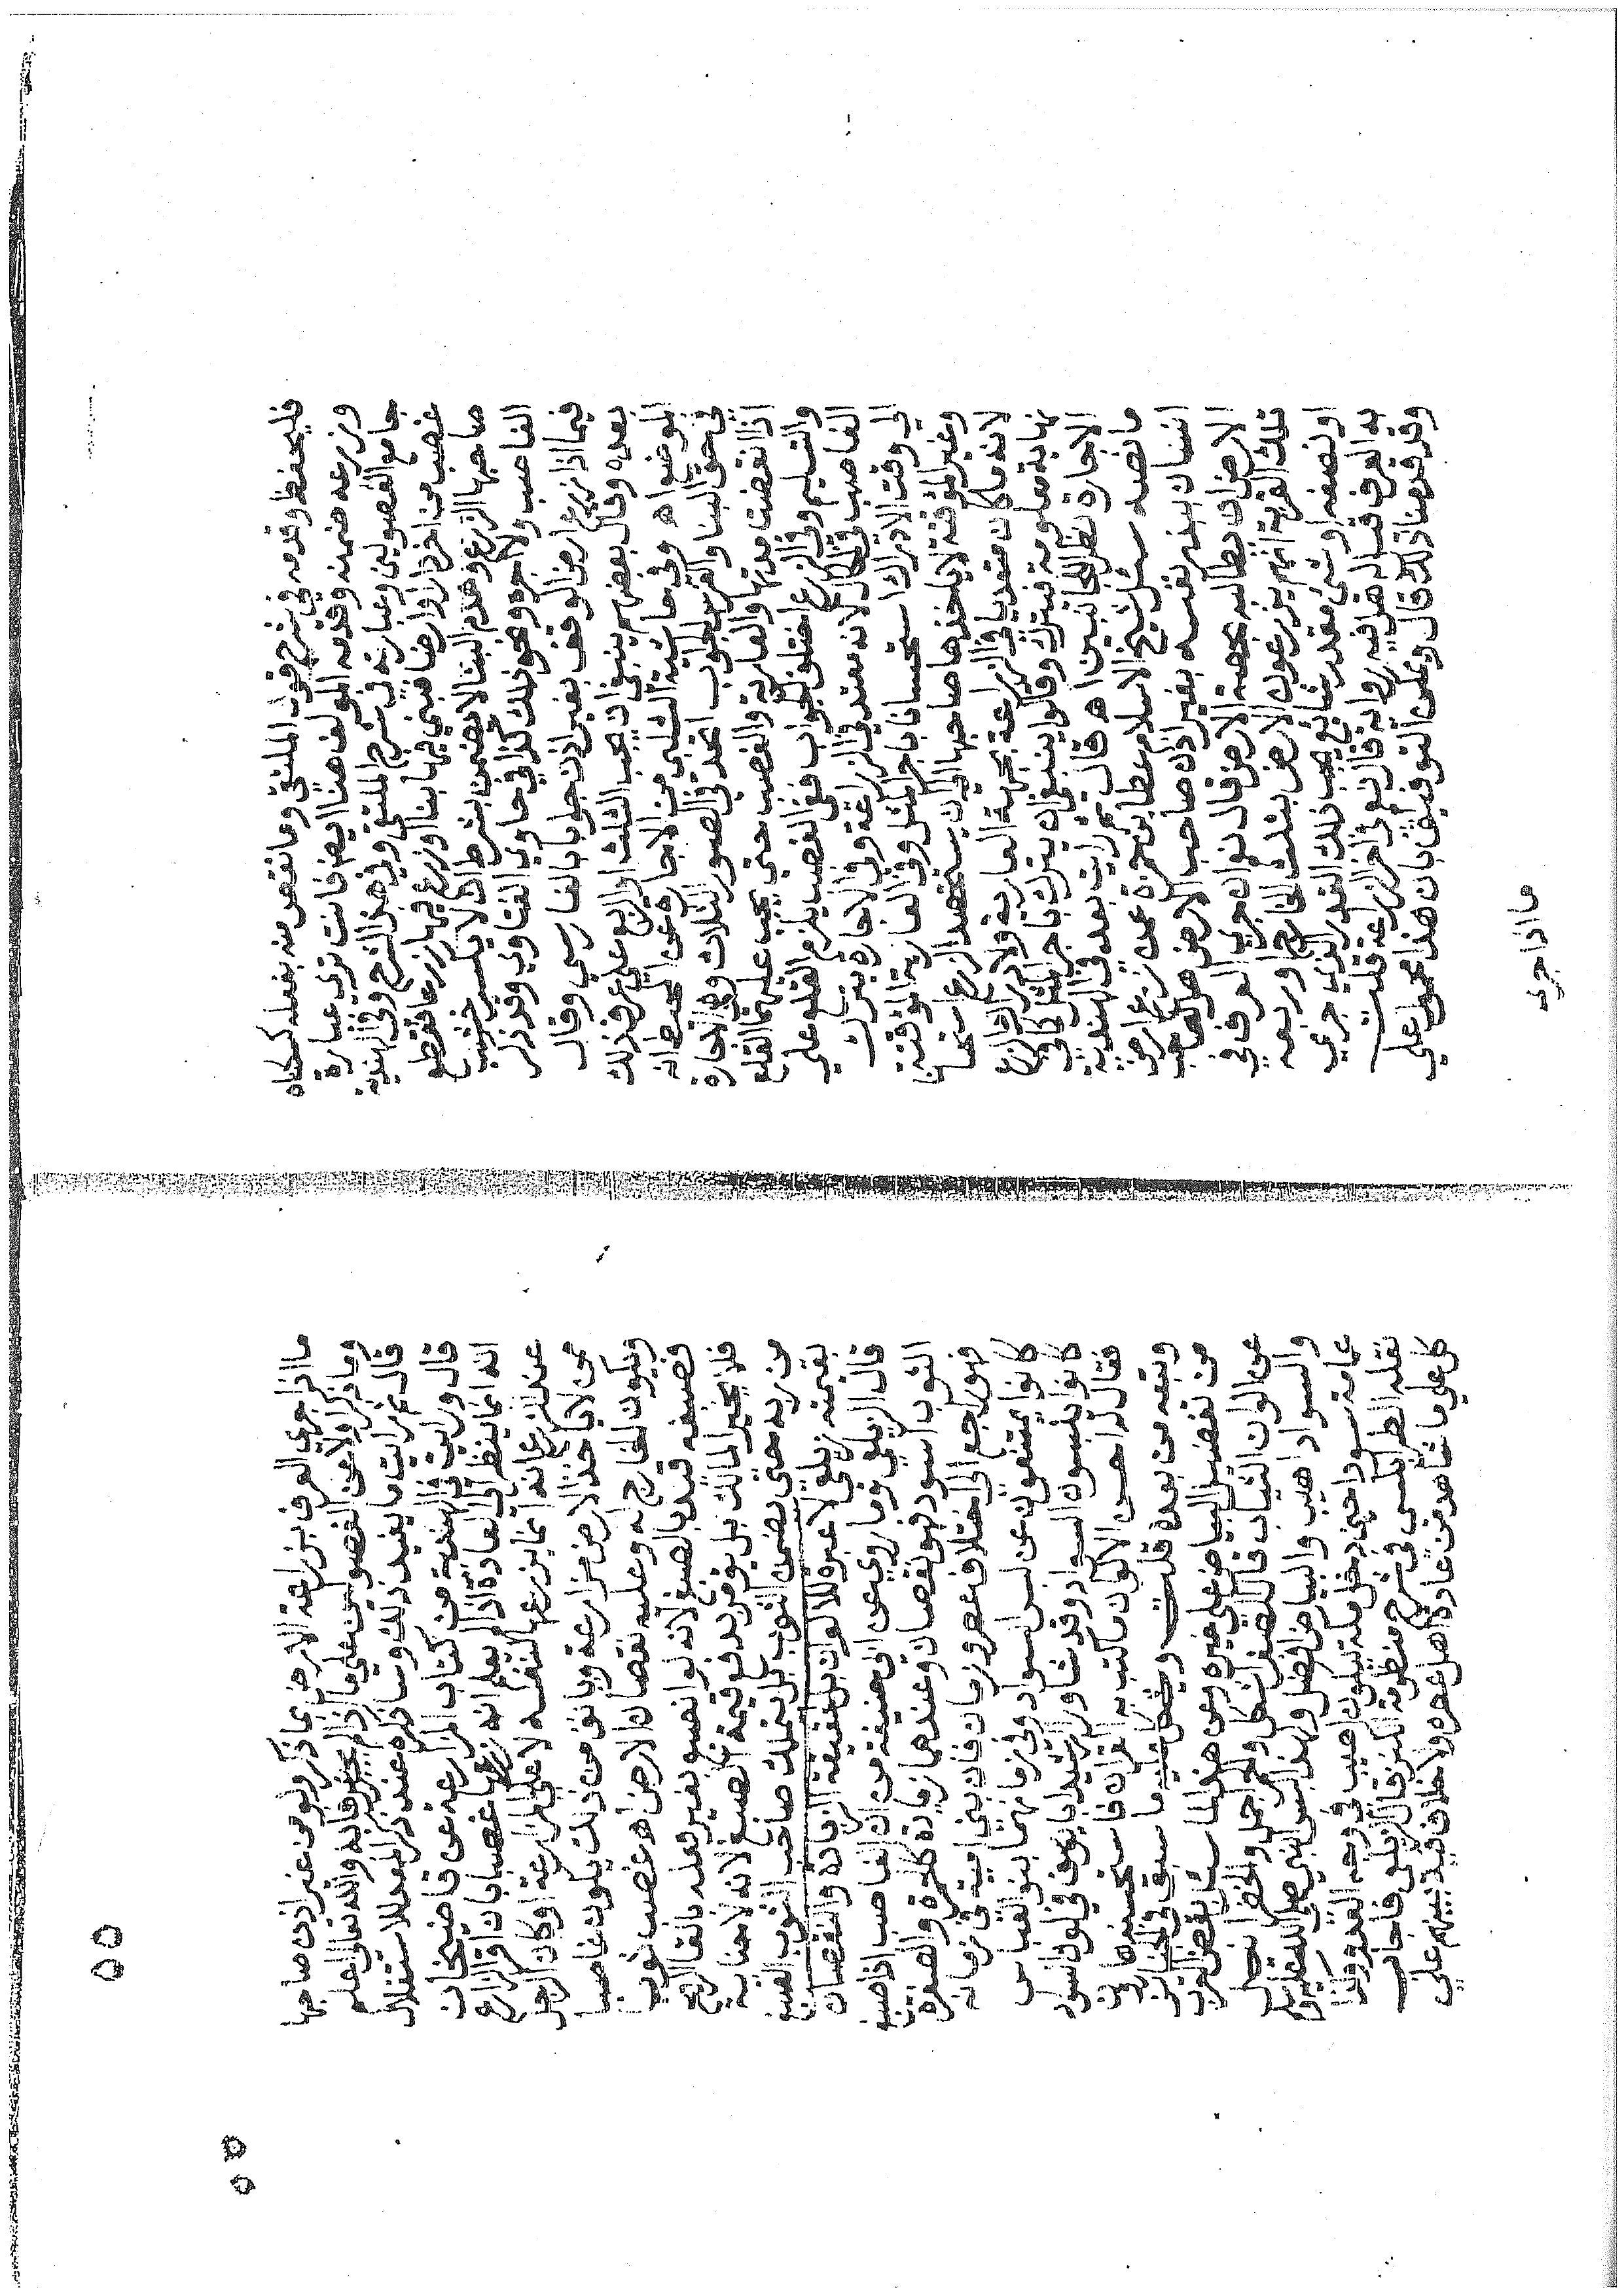 فليحفظ وقدمه في شرح قول الملتقى وما نقص منه بفعله كسكناه
وزرعه ضمنه وقدمه المولف هنا ايضا فانت تري عبارة
جامع الفصولين وعبارته في شرح الملتقى وفي هذا الشرح وفي الهندية
غصب من اخر دارا وارضا فبني فيها بنا او زرع فيها زرعا فقطع
صاحبها الزرع وهدم البنا لا يضمن بشرط ان لا يكسر خشب
الغاصب ولا اجره ونحو ذلك كذا في حاوي الفتاوي وقد ذكر
فيما اذا زرع ارض الوقف بغير اذن جوابا بالفارسي وقال
بعده وقال بعضهم ينبغي ان يجب الثلث او الربع علي عرف ذلك
الموضع اه وفي حاشية الشلبي من الاجارة عن المحيط انه
في حق البنا والغرس الجواب اتحد في الصور الثلاث وهو الاجارة
اذا انقضت مدتها والعارية والغصب حتي يجب عليهم القلع
والتسليم وفي الزرع اختلف الجواب ففي الغصب يلزم القلع علي
الغاصب في الحال لانه معتد في الزراعة وفي الاجارة يترك
الي وقت الادراك استحسانا باجر المثل وفي العارية الموقتة
وغير الموقتة لا ياخذها صاحبها الي ان يستحصد الزرع استحسانا
لانه ما كان متعديا في الزراعة بجهة العارية ولادراك الزرع
نهاية معلومة فيترك وقالوا ينبغي ان يترك باجر المثل كما في
الاجارة نظرا للجانبين اه قال ثم رايت بعده في الهندية
ما نصه سئل شيخ الاسلام عطا بن حمزة عمن زرع ارض
انسان ببذر نفسه بغير اذن صاحب الارض هل لصاحب
الارض ان يطالبه بحصة الارض قال نعم ان جري العرف في
تلك القرية انهم يزرعون الارض بثلث الخارج او ربعه
او نصفه او شي مقدر شايع يجب ذلك القدر الذي جري
به العرف قيل له هل فيه رواية قال نعم في اخر المزارعة قلت
وقد قدمنا ذلك قال ويمكن التوفيق بان هذا محمول علي
ما اذا جري
ما اذا جري العرف بزراعة الارض بما ذكر ولو من غير اذن صاحبها
وما ذكر اولا عن الفصولين علي ما اذا لم يجز فانه والله تعالى اعلم
قال ثم رايت ما يفيد ذلك وساذكره عند ذكر المعد للاستغلال
قال ورايت في الهندية من كتاب المزارعة عن قاضيخان
انه انما ينظر الى العادة اذا لم يعلم انه زرعها غصبا بان اقر الزارع
عند الزرع انه انما يزرعها لنفسه لا على المزارعة او كان الرجل
ممن لا ياخذ الارض مزارعة ويانف من ذلك يكون غاصبا
ويكون الخارج له وعليه نقصان الارض اه غصب ثوب
فصبغه قيد بالصبغ لانه لو انصبغ بغير فعله بالقاء الريح
فلا يخير المالك بل يومر بدفع قيمة الصبغ لانه لا جناية
من ربه حتى يضمن الثوب بل يتملك صاحب الثوب الصبغ
بقيمته زيلعي لا عبرة للالوان بل لحقيقة الزيادة والنقصان
قال الزيلعي وما روي عن ابي حنيفة من ان الغاصب اذا صبغ
الثوب اسود فهو نقصان وعندهما زيادة كالحمرة والصفرة
فهو راجع الى اختلاف عصر وزمان فان بني امية في زمانه
كانوا يمتنعون عن لبس السواد وفي زمانهما بنو العباس
كانوا يلبسون السواد وقد شاور الرشيد ابا يوسف في لون السواد
فقال له احسن الالوان ما كتب به القران فاستحسنه هارون
وتبعه من بعده قلت ويشكل عليه ما سبق في الجنائز
من تفضيل البياض علي غيره وعن هذا لما سئل بعض العرب
عن الوان الثياب قال الصفر اشكل والحمر اجمل والخضر انبل
والسواد اهيب والبياض افضل ولهذا لبس النبي صلى الله عليه وسلم
عمامة سودا حين دخل مكة ليكون اهيب في وجه العدو ولذا
نقله الطرابلسي في شرح منظومة الكنز قال الزيلعي فاجاب
كل علي ما شاهد من عادة اهل عصره ولا خلاف فيه بينهم علي
٥٥
٥٥